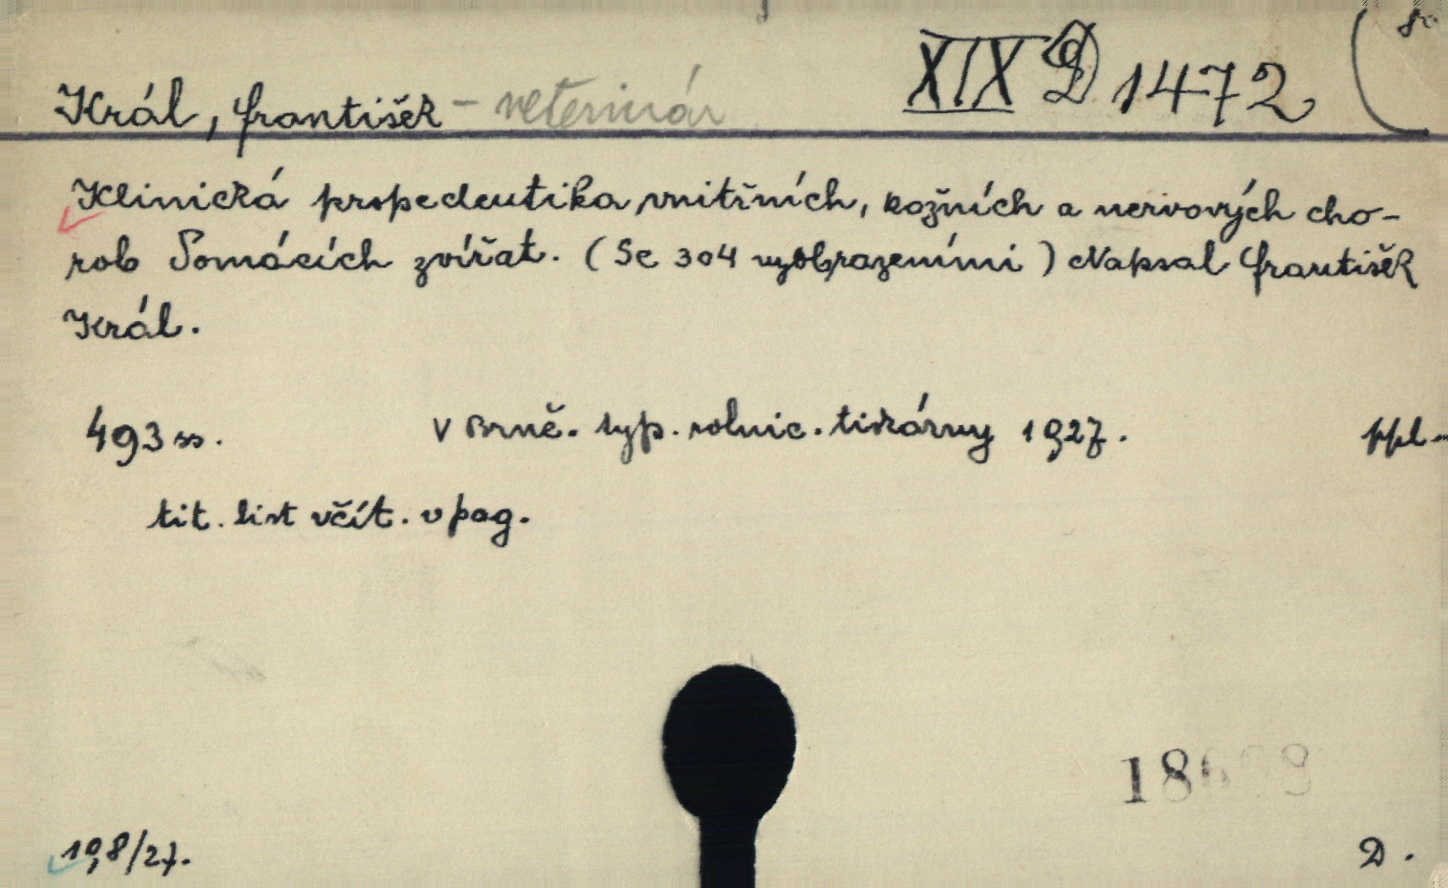 XIX D 1472 (8°
Král, František - veterinár
Klinická propedeutika vnitřních, kožních a nervových cho-
rob domácích zvířat. (Se 304 vyobrazeními) Napsal František
Král.
493 ss. V Brně. typ. rolnic. tiskárny 1927. ppl-
tit. list včít. v pag.
19,8/27. D.